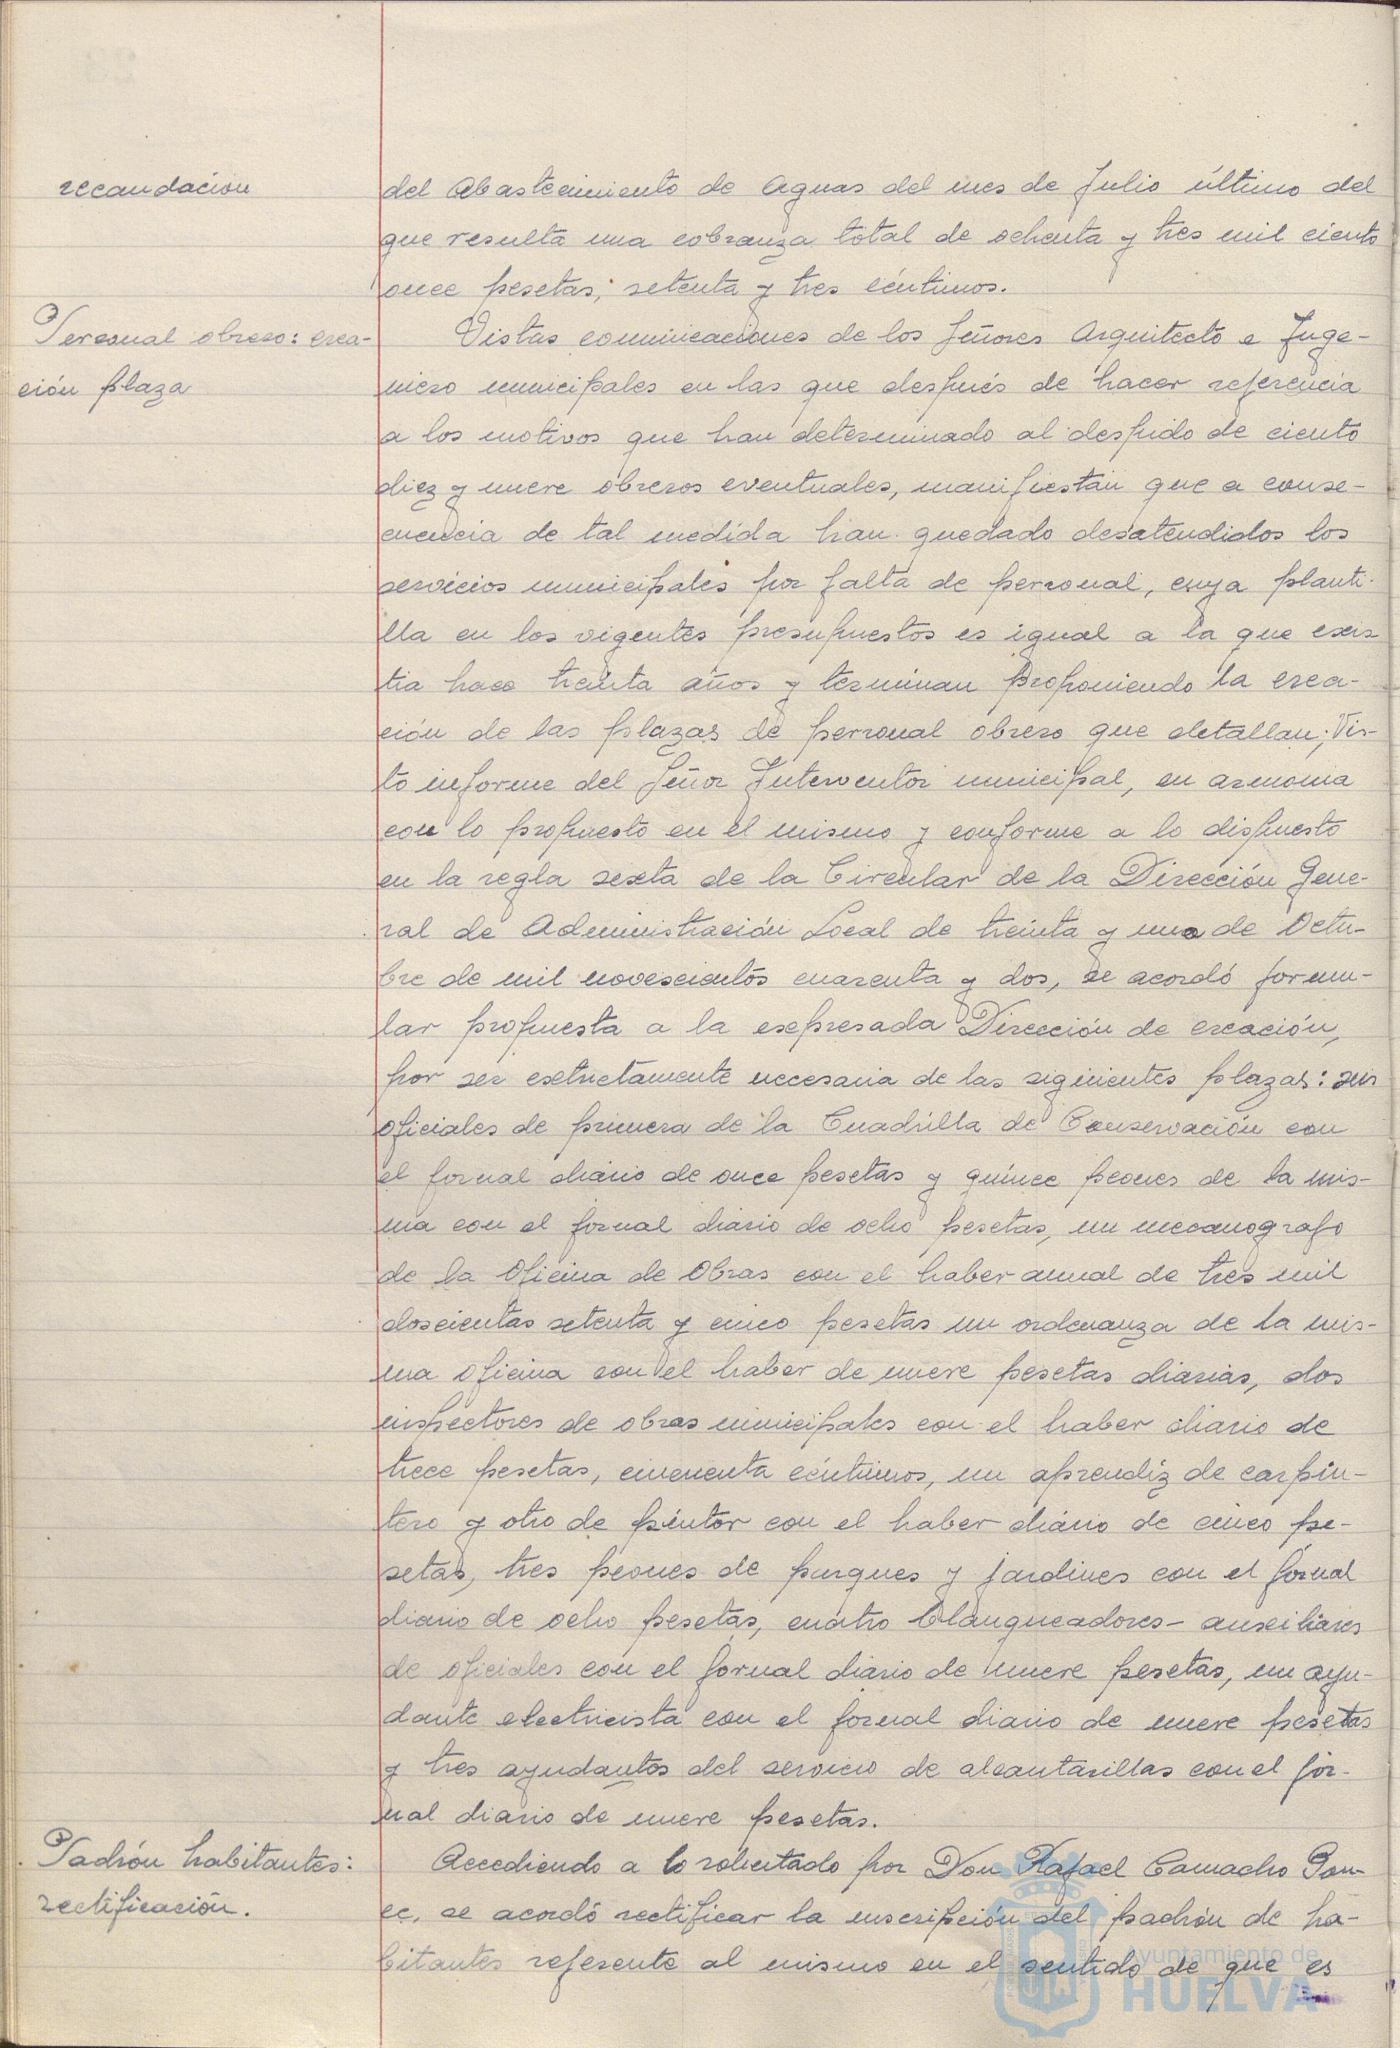 recaudación
del Abastecimiento de Aguas del mes de Julio último del
que resulta una cobranza total de ochenta y tres mil ciento
once pesetas, setenta y tres céntimos.
Personal obrero: crea-
ción plaza
Vistas comunicaciones de los Señores Arquitecto e Inge-
niero municipales en las que después de hacer referencia
a los motivos que han determinado al despido de ciento
diez y nueve obreros eventuales, manifiestan que a conse-
cuencia de tal medida han quedado desatendidos los
servicios municipales por falta de personal, cuya planti-
lla en los vigentes presupuestos es igual a la que exis
tia hace treinta años y terminan proponiendo la crea-
ción de las plazas de personal obrero que detallan; Vis-
to informe del Señor Interventor municipal, en armonia
con lo propuesto en el mismo y conforme a lo dispuesto
en la regla sexta de la Circular de la Dirección Gene-
ral de Administración Local de treinta y uno de Octu-
bre de mil novescientos cuarenta y dos, se acordó formu-
lar propuesta a la expresada Dirección de creación,
por ser extrictamente necesaria de las siguientes plazas: seis
oficiales de primera de la Cuadrilla de Conservación con
el jornal diario de once pesetas y quince peones de la mis-
ma con el jornal diario de ocho pesetas, un mecanografo
de la Oficina de Obras con el haber anual de tres mil
doscientas setenta y cinco pesetas un ordenanza de la mis-
ma oficina con el haber de nueve pesetas diarias, dos
inspectores de obras municipales con el haber diario de
trece pesetas, cincuenta céntimos, un aprendiz de carpin-
tero y otro de pintor con el haber diario de cinco pe-
setas, tres peones de parques y jardines con el jornal
diario de ocho pesetas, cuatro blanqueadores- auxiliares
de oficiales con el jornal diario de nueve pesetas, un ayu-
dante electricista con el jornal diario de nueve pesetas
y tres ayudantes del servicio de alcantarillas con el jor-
nal diario de nueve pesetas.
Padrón habitantes:
rectificación.
Accediendo a lo solicitado por Don Rafael Camacho Pon-
ce, se acordó rectificar la inscripción del padrón de ha-
bitantes referente al mismo en el sentido de que es
Ayuntamiento de
HUELVA